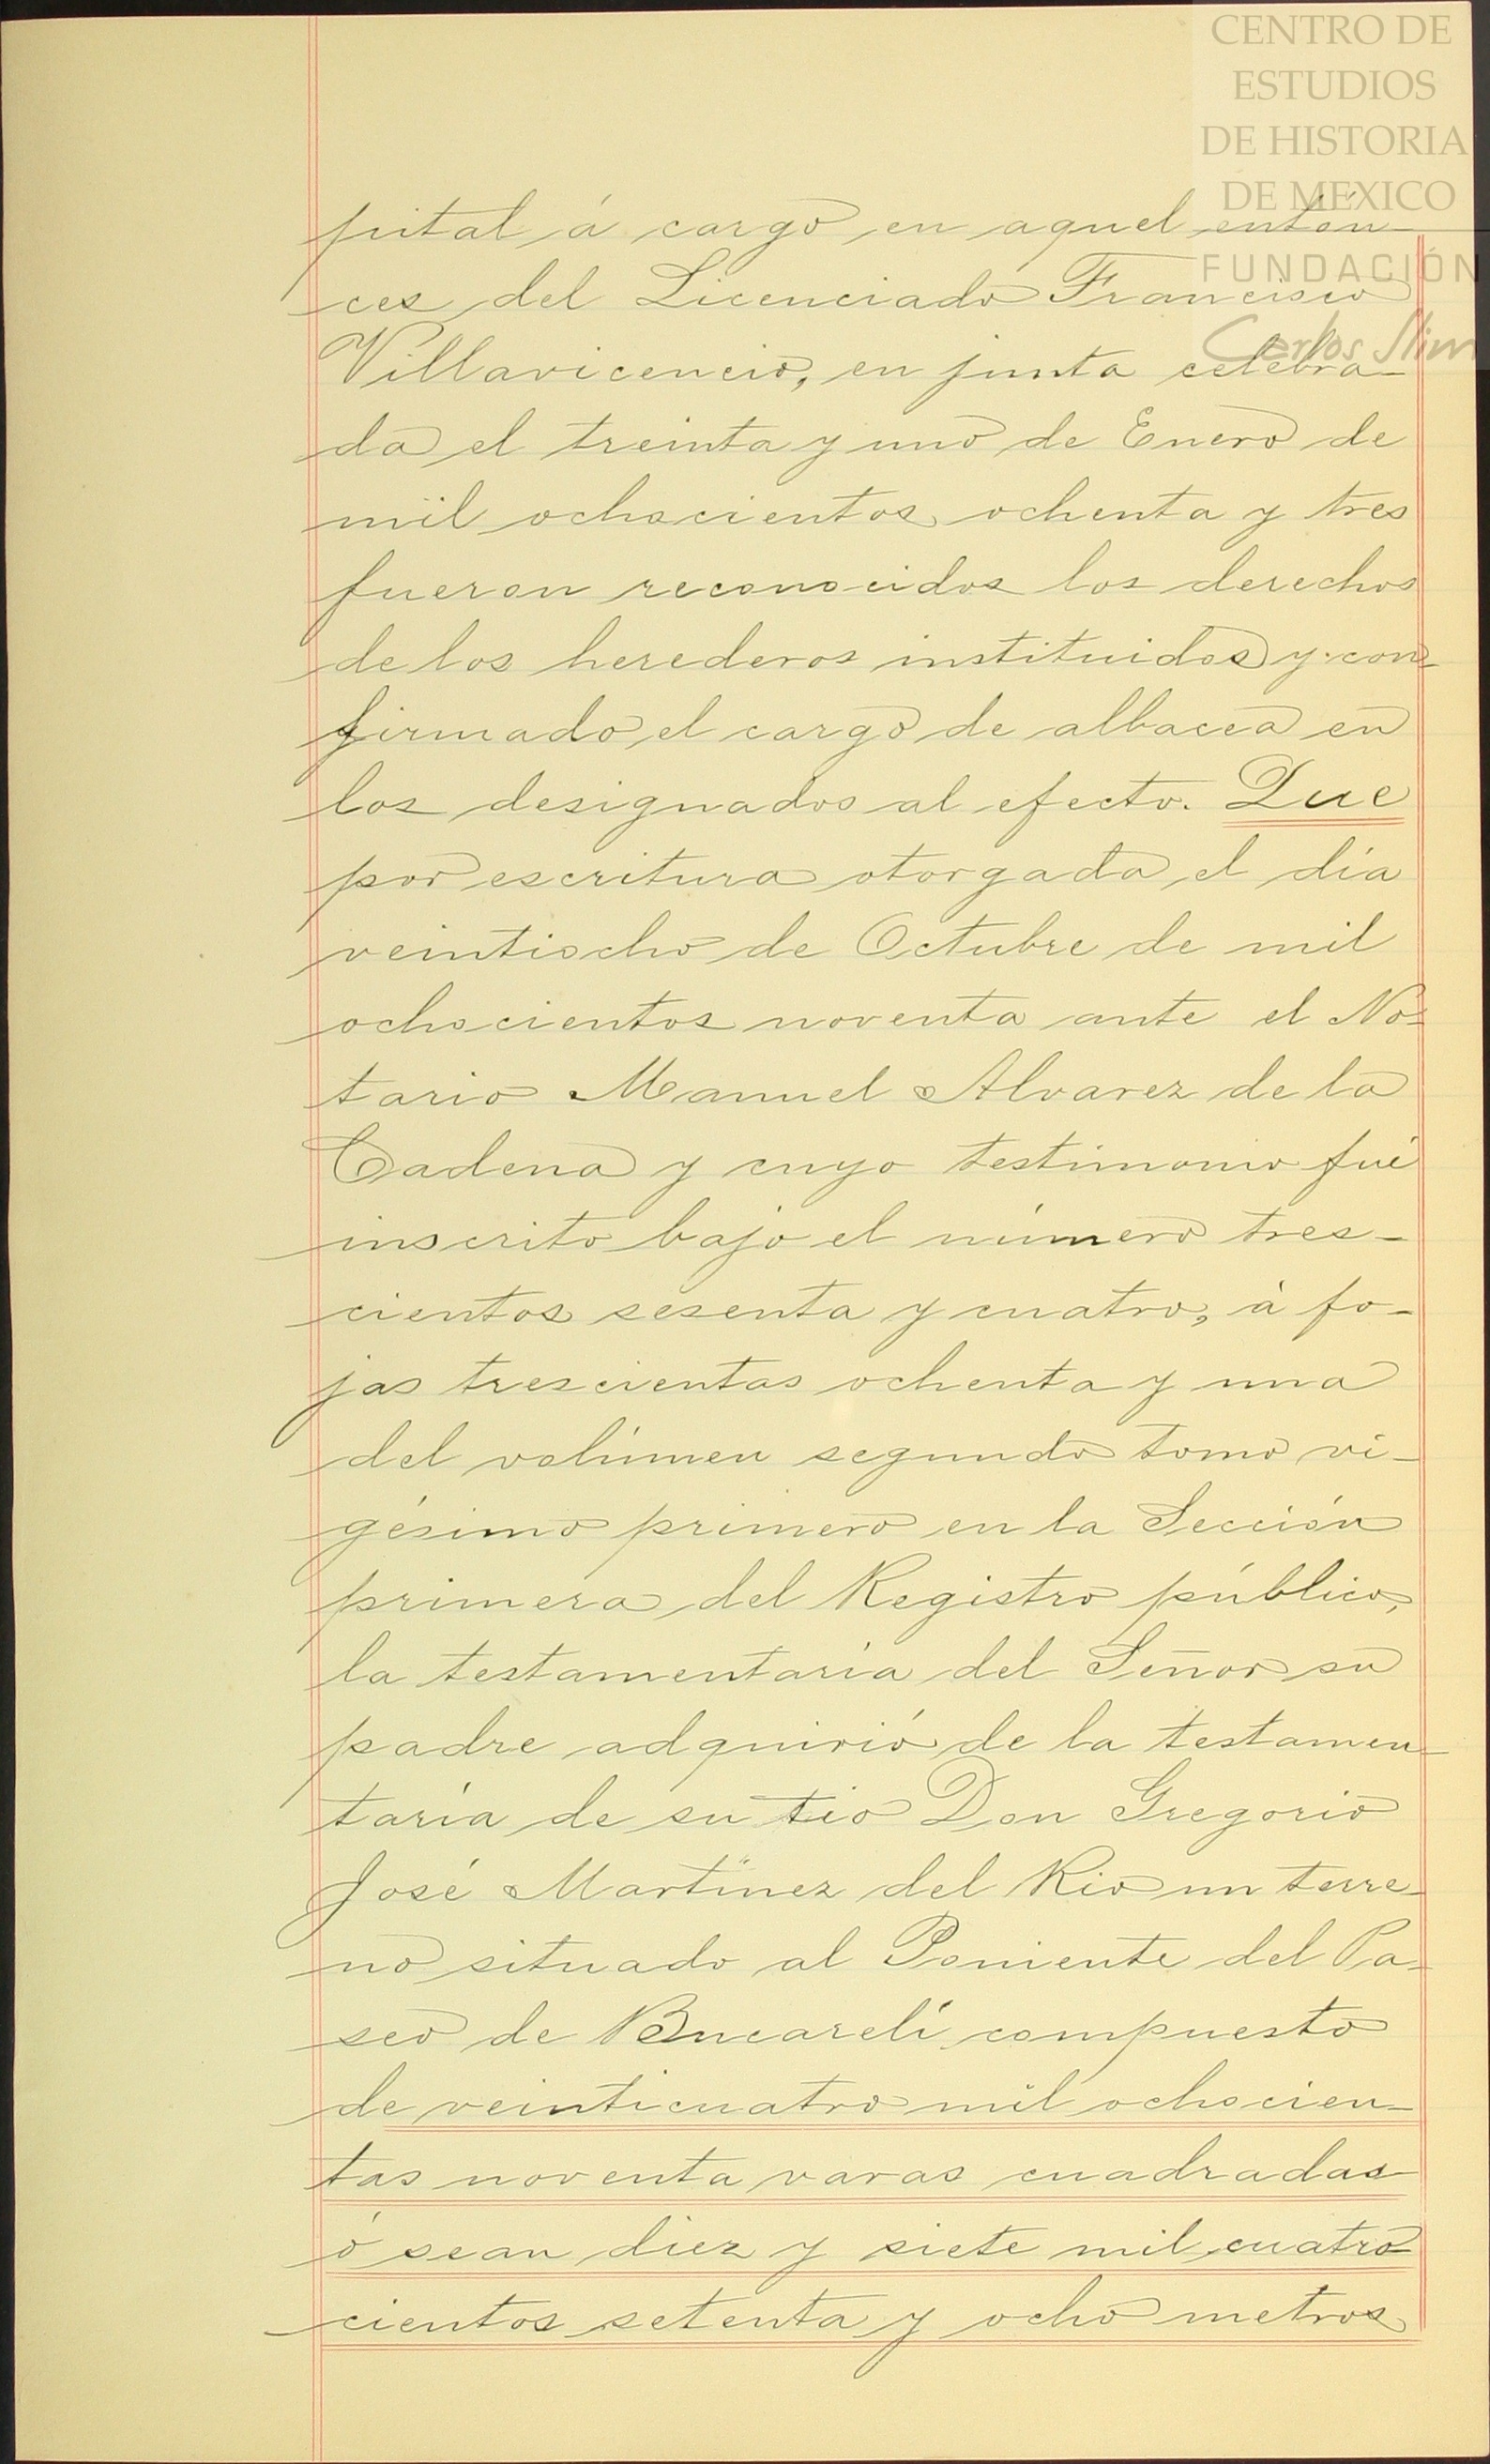 CENTRO DE
ESTUDIOS
DE HISTORIA
DE MEXICO
FUNDACIÓN
Carlos Slim
pital á cargo en aquel entón-
ces del Licenciado Francisco
Villavicencio, en junta celebra-
da el treinta y uno de Enero de
mil ochocientos ochenta y tres
fueron reconocidos los derechos
de los herederos instituidos y con-
firmado el cargo de albacea en
los designados al efecto. Que
por escritura otorgada el día
veintiocho de Octubre de mil
ochocientos noventa ante el No-
tario Manuel Alvarez de la
Cadena y cuyo testimonio fué
inscrito bajo el número tres-
cientos sesenta y cuatro, á fo-
jas trescientas ochenta y una
del volúmen segundo tomo vi-
gésimo primero en la Sección
primera del Registro público,
la testamentaría del Señor su
padre adquirió de la testamen-
taría de su tio Don Gregorio
José Martínez del Rio un terre-
no situado al Poniente del Pa-
seo de Bucareli compuesto
de veinticuatro mil ochocien-
tas noventa varas cuadradas
ó sean diez y siete mil cuatro
cientos setenta y ocho metros